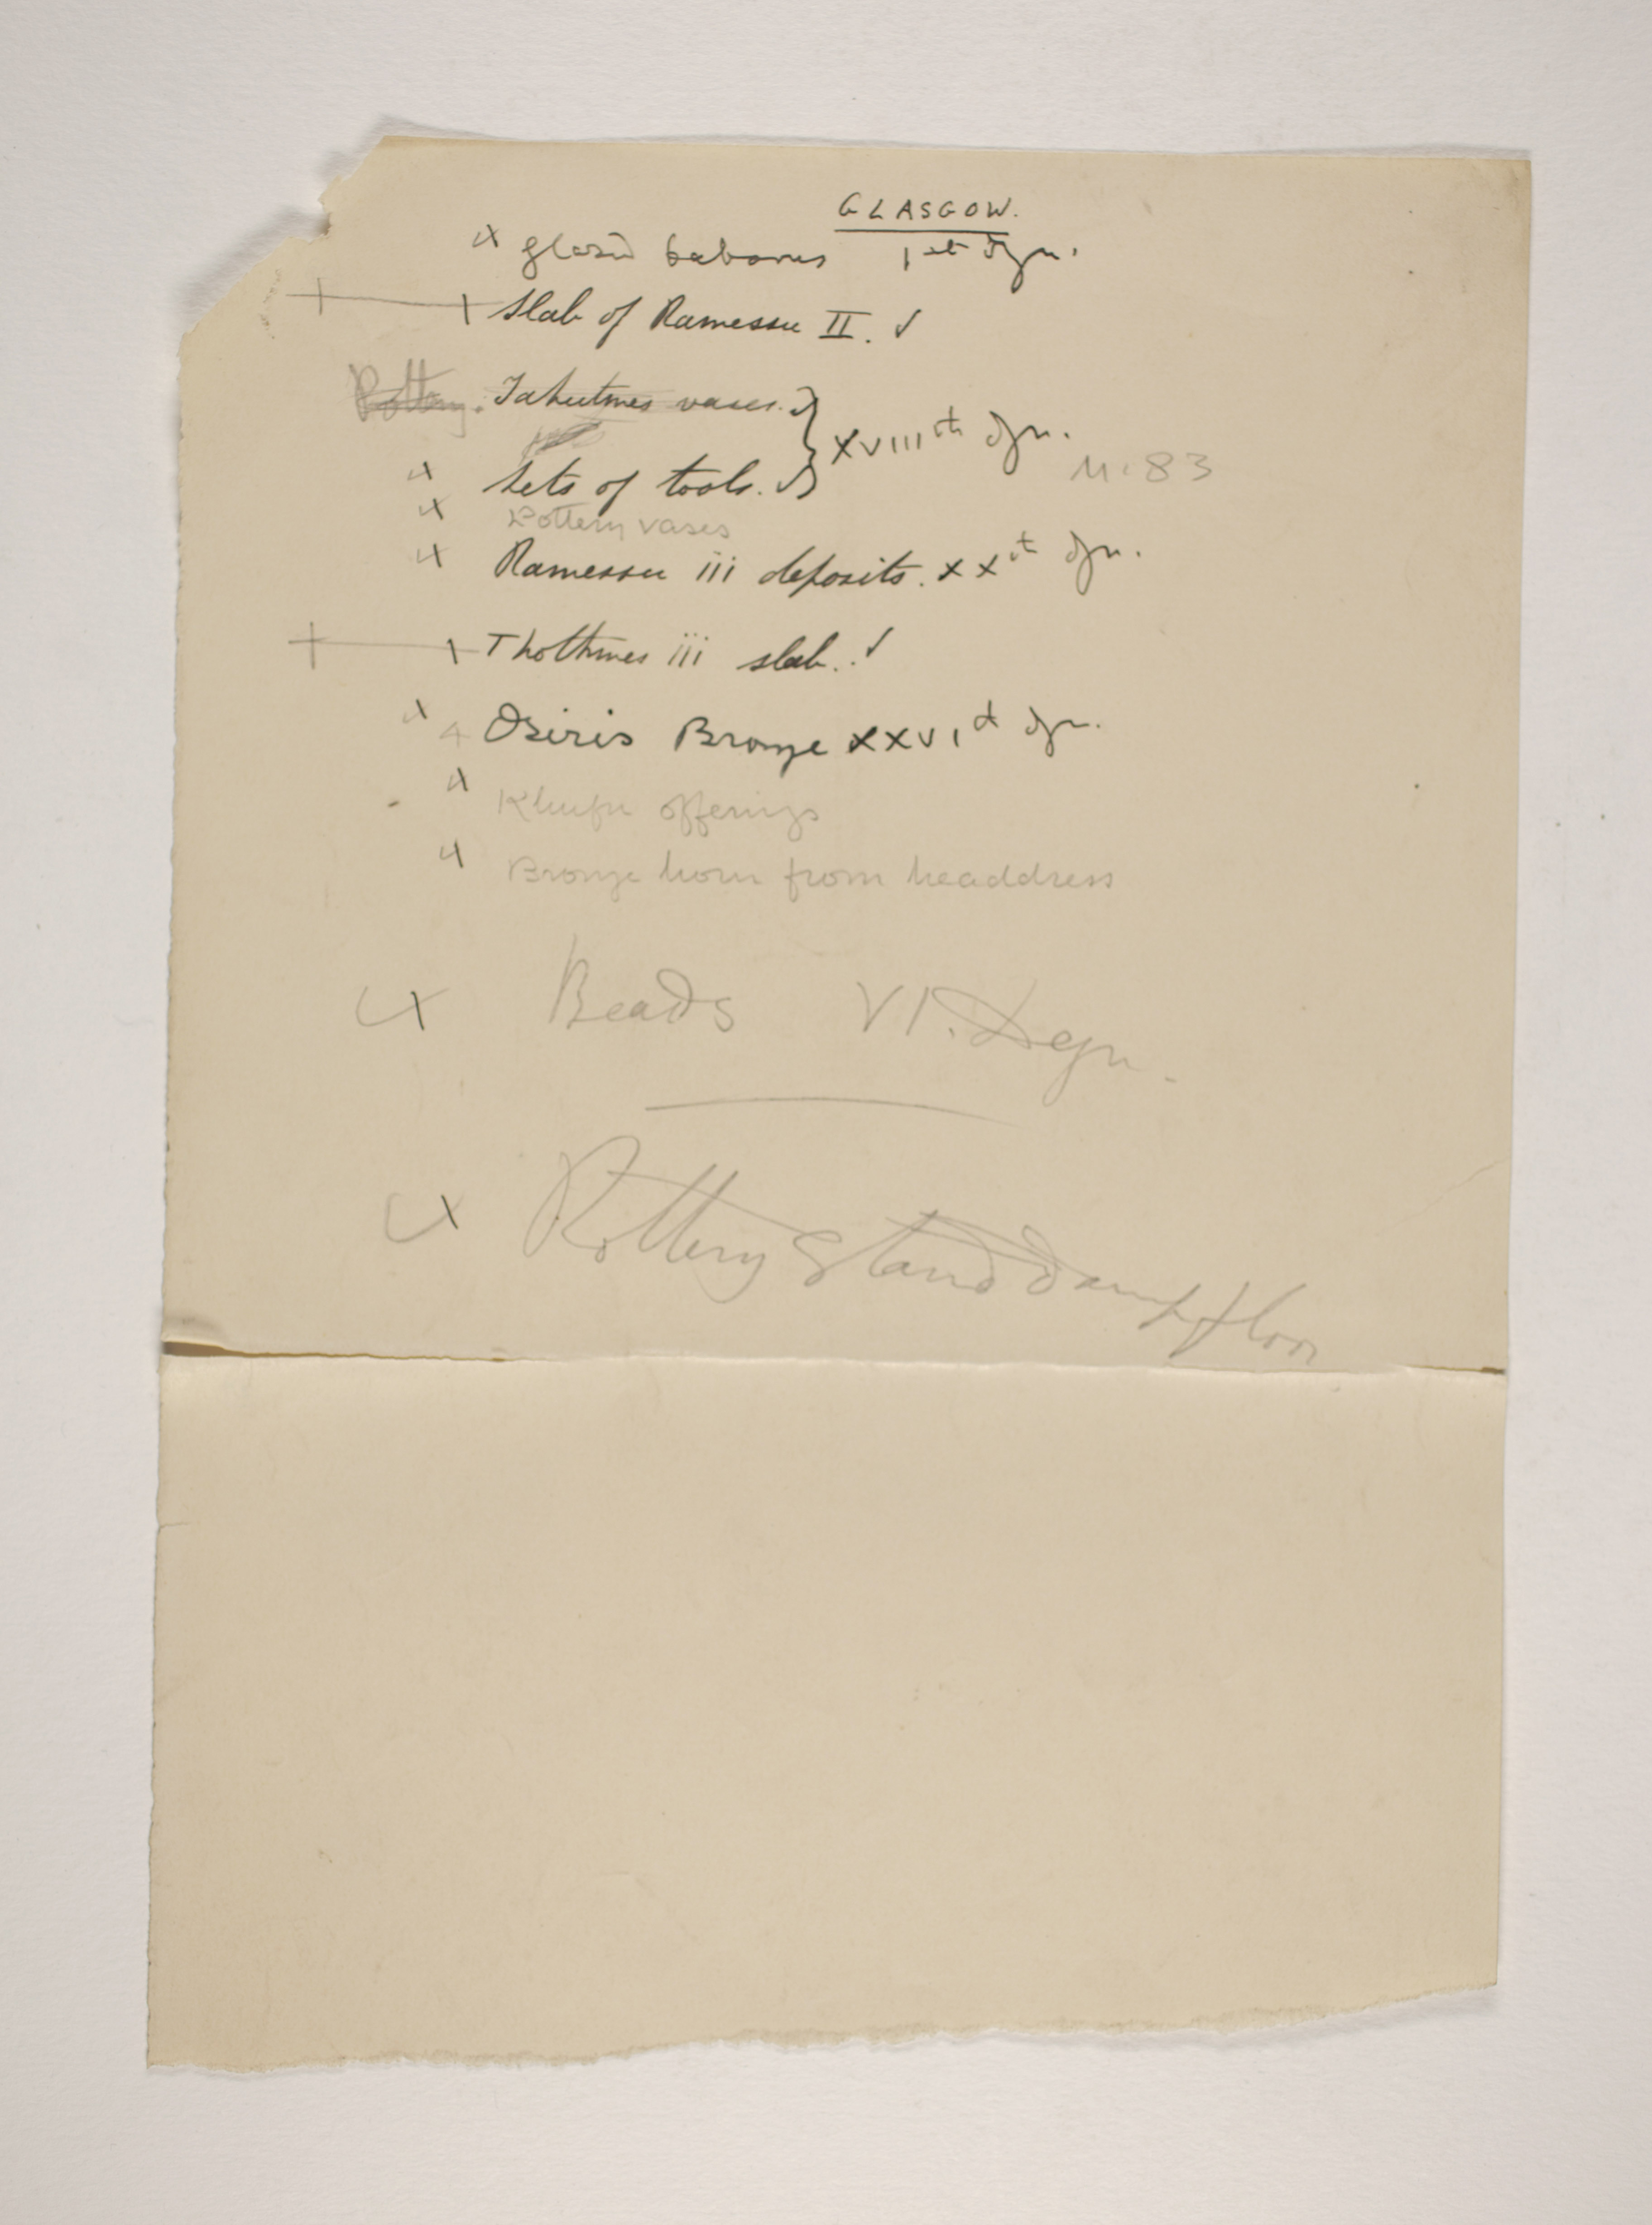 GLASGOW.
x glazed baboons 1st Dyn.
+ 1 Slab of Ramessu II. ✓
Pottery. Tahutmes vases. } XVIIIth dyn.
x Sets of tools. M.83
x Pottery vases
x Ramessu iii deposits. XXth dyn.
+ 1 Thothmes iii slab. ✓
x Osiris Bronze XXVIth dyn.
x Khufu offerings
x Bronze horn from headdress
x Beads VI. Dyn.
x Pottery Stand damp floor